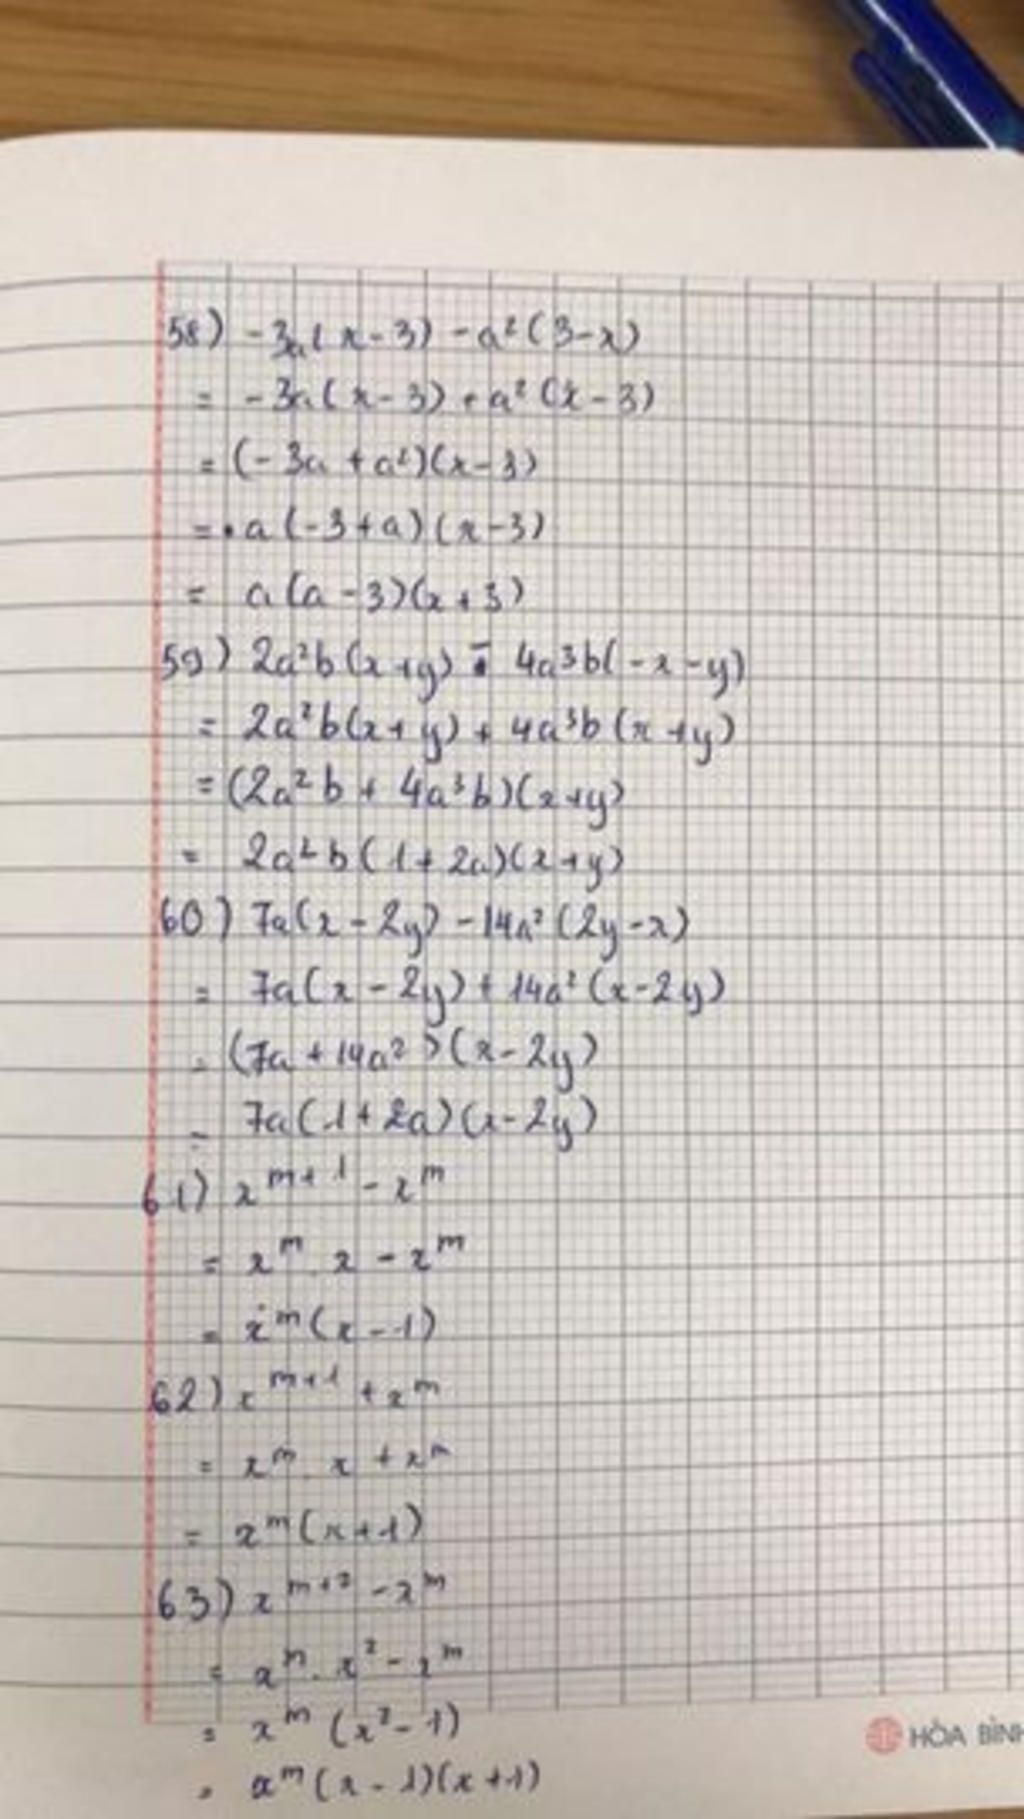 58) -3a(x-3) - a²(3-x)
= -3a(x-3) + a²(x-3)
= (-3a + a²)(x-3)
= a(-3+a)(x-3)
= a(a-3)(x+3)
59) 2a²b(x+y) - 4a³b(-x-y)
= 2a²b(x+y) + 4a³b(x+y)
= (2a²b + 4a³b)(x+y)
= 2a²b(1+2a)(x+y)
60) 7a(x-2y) - 14a²(2y-x)
= 7a(x-2y) + 14a²(x-2y)
= (7a+14a²)(x-2y)
= 7a(1+2a)(x-2y)
61) x^{m+1} - x^m
= x^m . x - x^m
= x^m(x-1)
62) x^{m+1} + x^m
= x^m . x + x^m
= x^m(x+1)
63) x^{m+2} - x^m
= x^m . x² - x^m
= x^m (x²-1)
= x^m(x-1)(x+1)
HÒA BÌNH